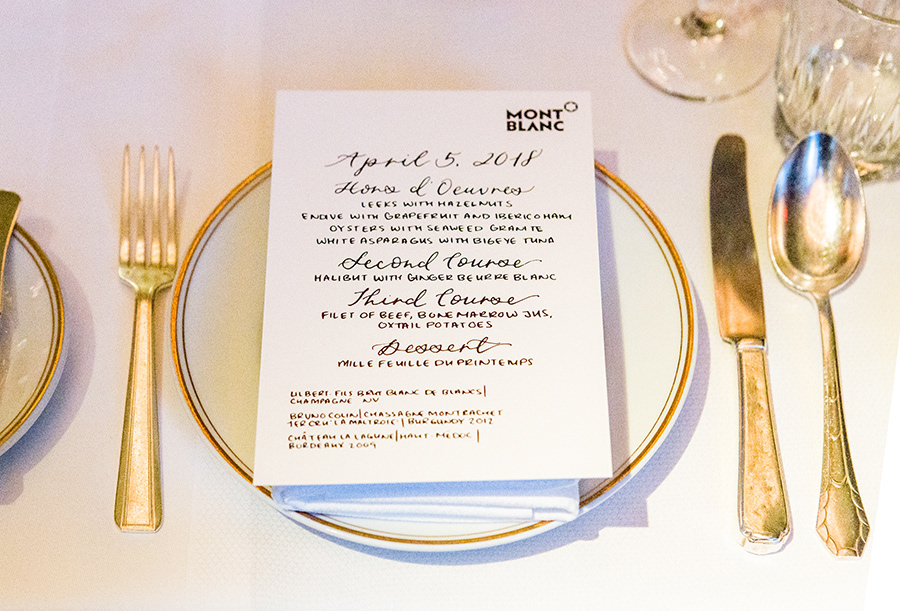 MONT
BLANC
April 5, 2018
Hors d'Oeuvres
LEEKS WITH HAZELNUTS
ENDIVE WITH GRAPEFRUIT AND IBERICO HAM
OYSTERS WITH SEAWEED GRANITE
WHITE ASPARAGUS WITH BIGEYE TUNA
Second Course
HALIBUT WITH GINGER BEURRE BLANC
Third Course
FILET OF BEEF, BONE MARROW JUS,
OXTAIL POTATOES
Dessert
MILLE FEUILLE DU PRINTEMPS
ULBERT FILS BRUT BLANC DE BLANCS|
CHAMPAGNE NV
BRUNO COLIN|CHASSAGNE MONTRACHET
1ER CRU 'LA MALTROIE'| BURGUNDY 2012
CHÂTEAU LA LAGUNE|HAUT-MEDOC|
BORDEAUX 2009